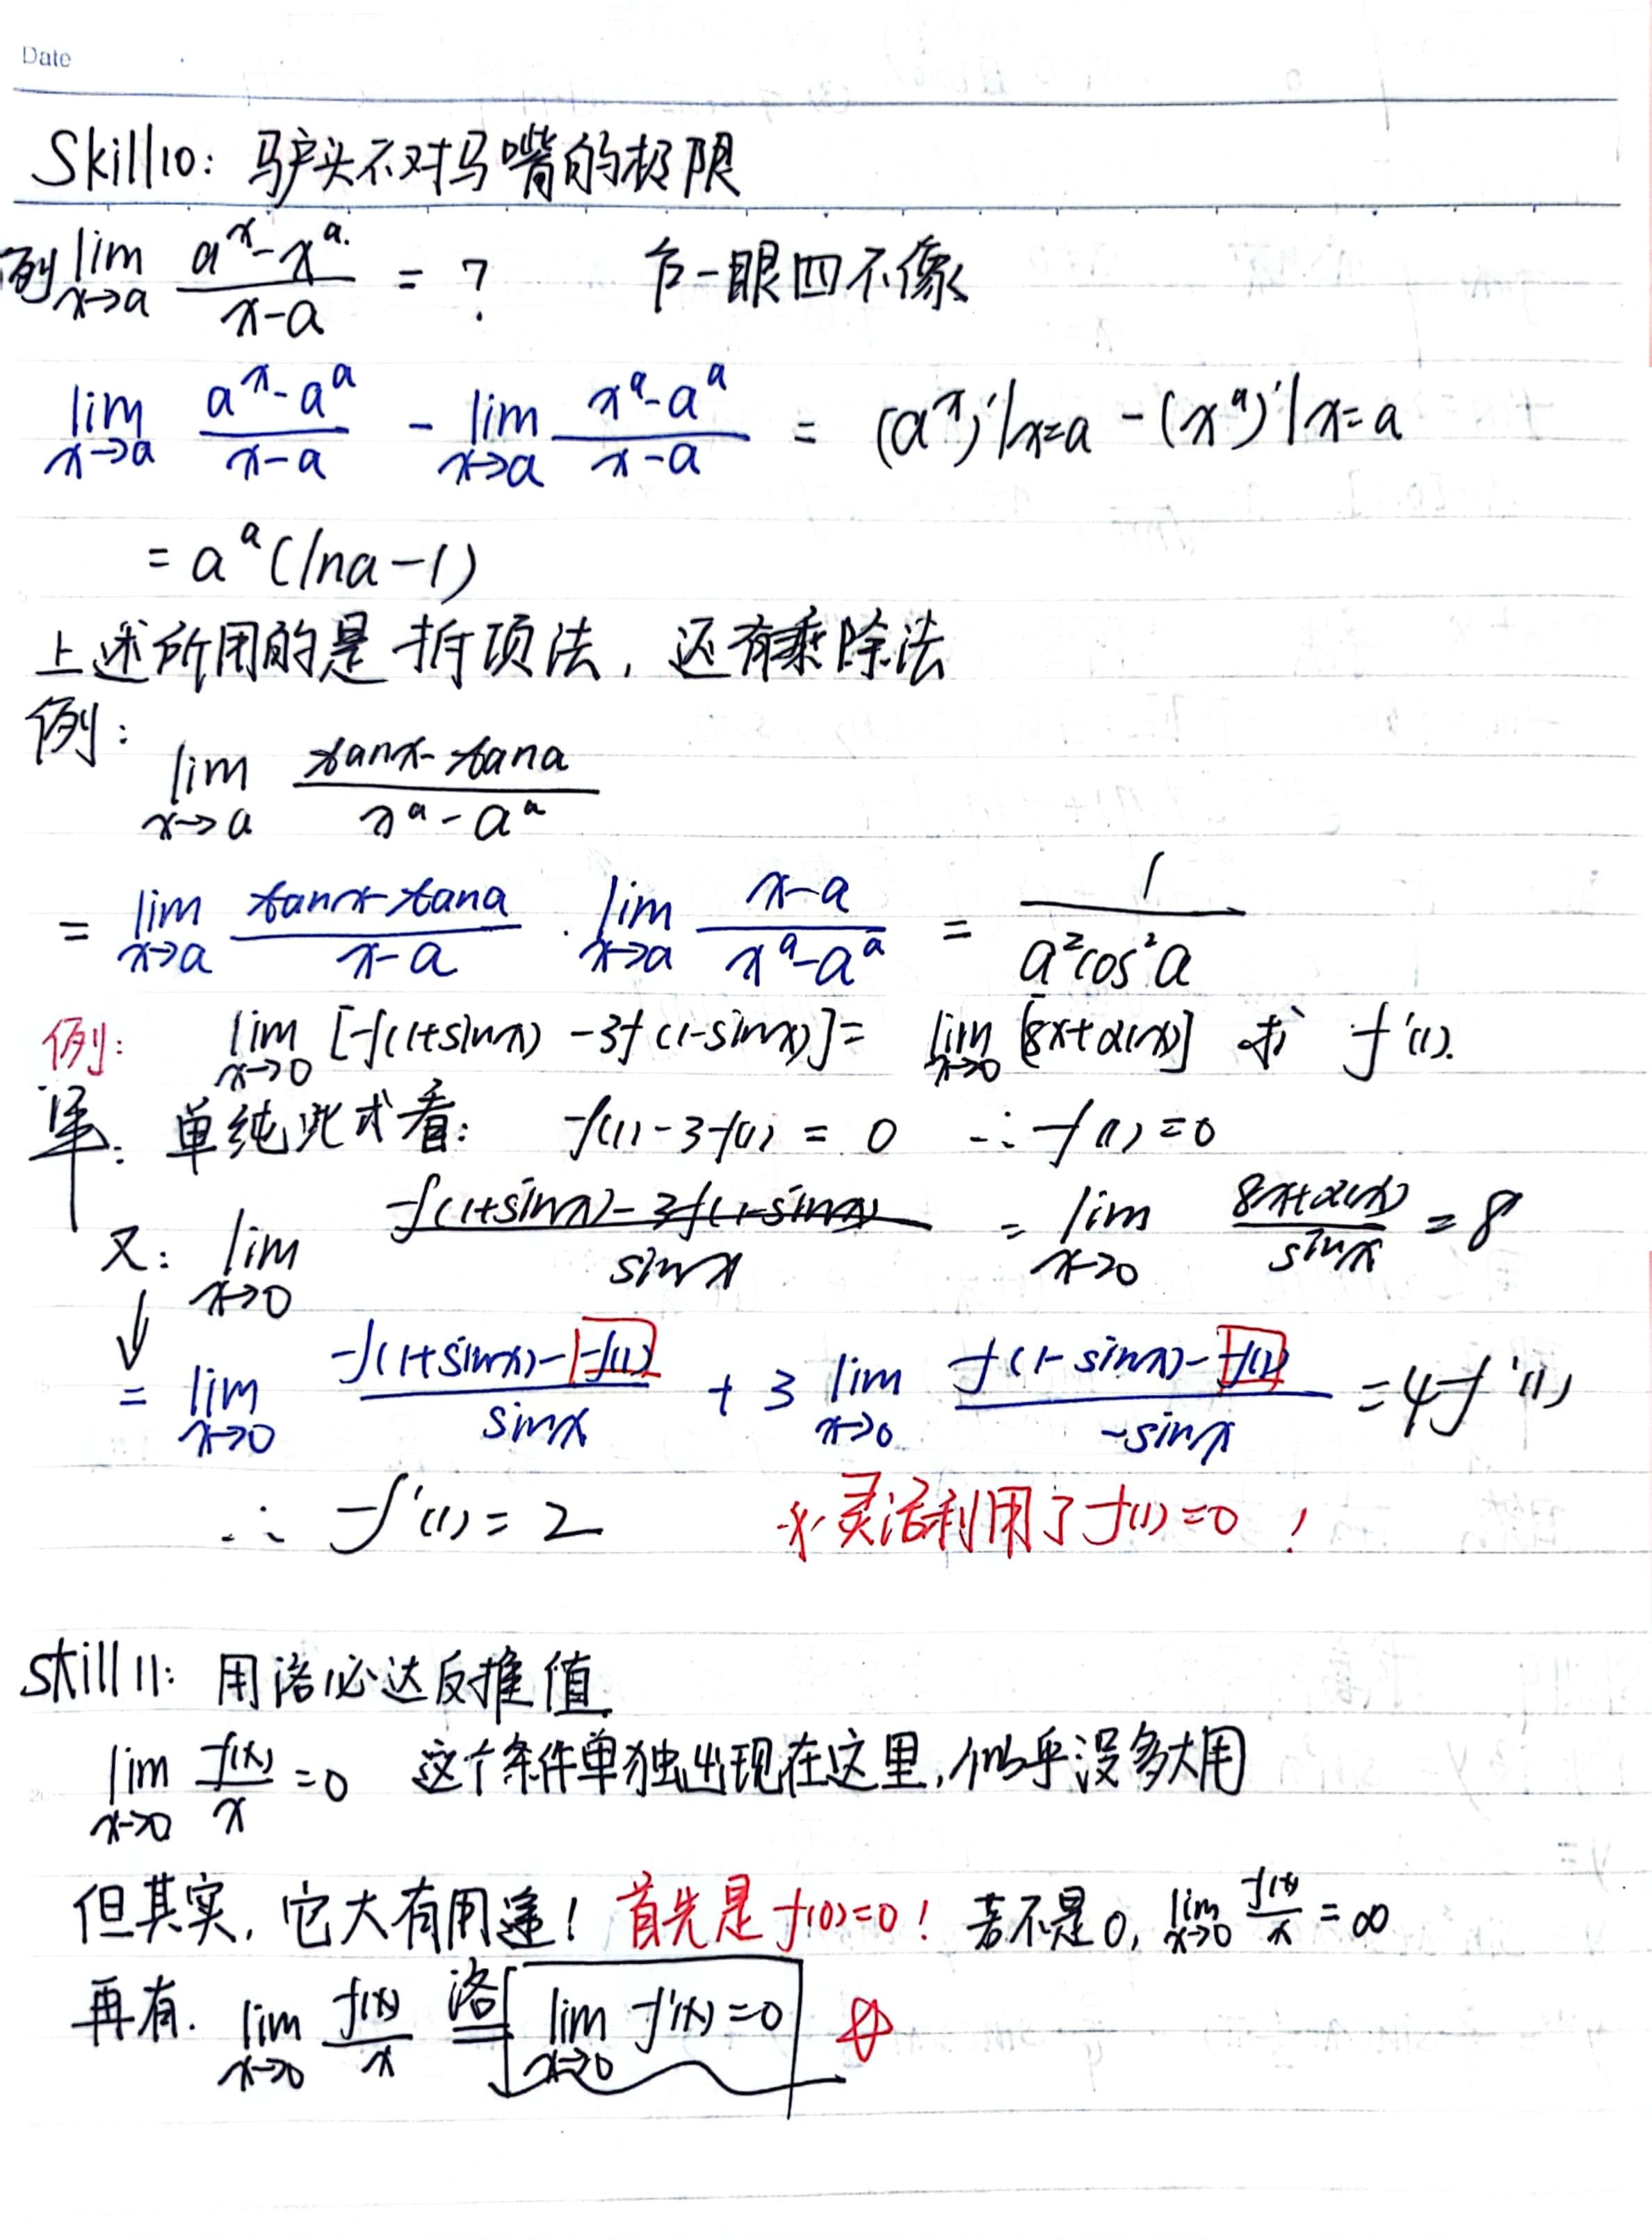 Date
Skill10: 驴头不对马嘴的极限
例 lim x→a (a^x - x^a)/(x-a) = ? 乍一眼四不像
lim x→a (a^x - a^a)/(x-a) - lim x→a (x^a - a^a)/(x-a) = (a^x)'|x=a - (x^a)'|x=a
= a^a (lna-1)
上述所用的是拆项法, 还有乘除法
例:
lim x→a (tanx-tana)/(x^a - a^a)
= lim x→a (tanx-tana)/(x-a) · lim x→a (x-a)/(x^a-a^a) = 1/(a^2cos^2a)
例: lim x→0 [f(1+sinx) -3f(1-sinx)] = lim x→0 [8x+α(x)] 求 f'(1).
解: 单纯此式看: f(1)-3f(1) = 0 ∴ f(1)=0
又: lim x→0 (f(1+sinx)-3f(1-sinx))/sinx = lim x→0 (8x+α(x))/sinx = 8
↓ = lim x→0 (f(1+sinx)-f(1))/sinx + 3 lim x→0 (f(1-sinx)-f(1))/(-sinx) = 4f'(1)
∴ f'(1) = 2 ※灵活利用了f(1)=0 !
skill11: 用洛必达反推值.
lim x→0 f(x)/x =0 这个条件单独出现在这里,似乎没多大用
但其实, 它大有用途! 首先是f(0)=0! 若不是0, lim x→0 f(x)/x = ∞
再有. lim x→0 f(x)/x 洛= lim x→0 f'(x)=0